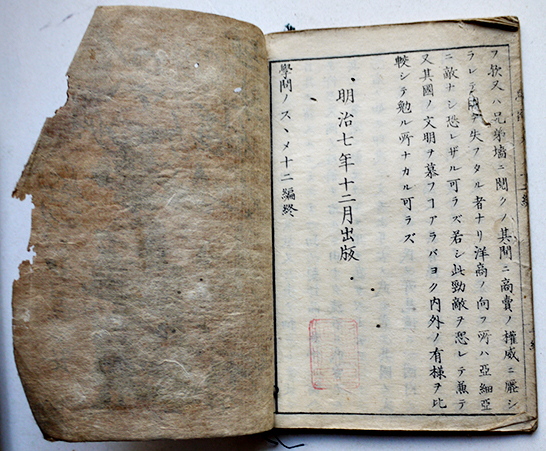 ヲ 又ハ兄弟墻ニ鬩クノ其間ニ商賣ノ權威ニ壓シ
ラレテ國ヲ失フタル者ナリ洋商ノ向フ所ハ亞細亞
ニ敵ナシ恐レザル可ラズ若シ此勁敵ヲ恐レテ兼テ
又其國ノ文明ヲ慕フヿアラバヨク内外ノ有樣ヲ比
較シテ勉ル所ナカル可ラズ
明治七年十二月出版
學問ノスヽメ十二編終